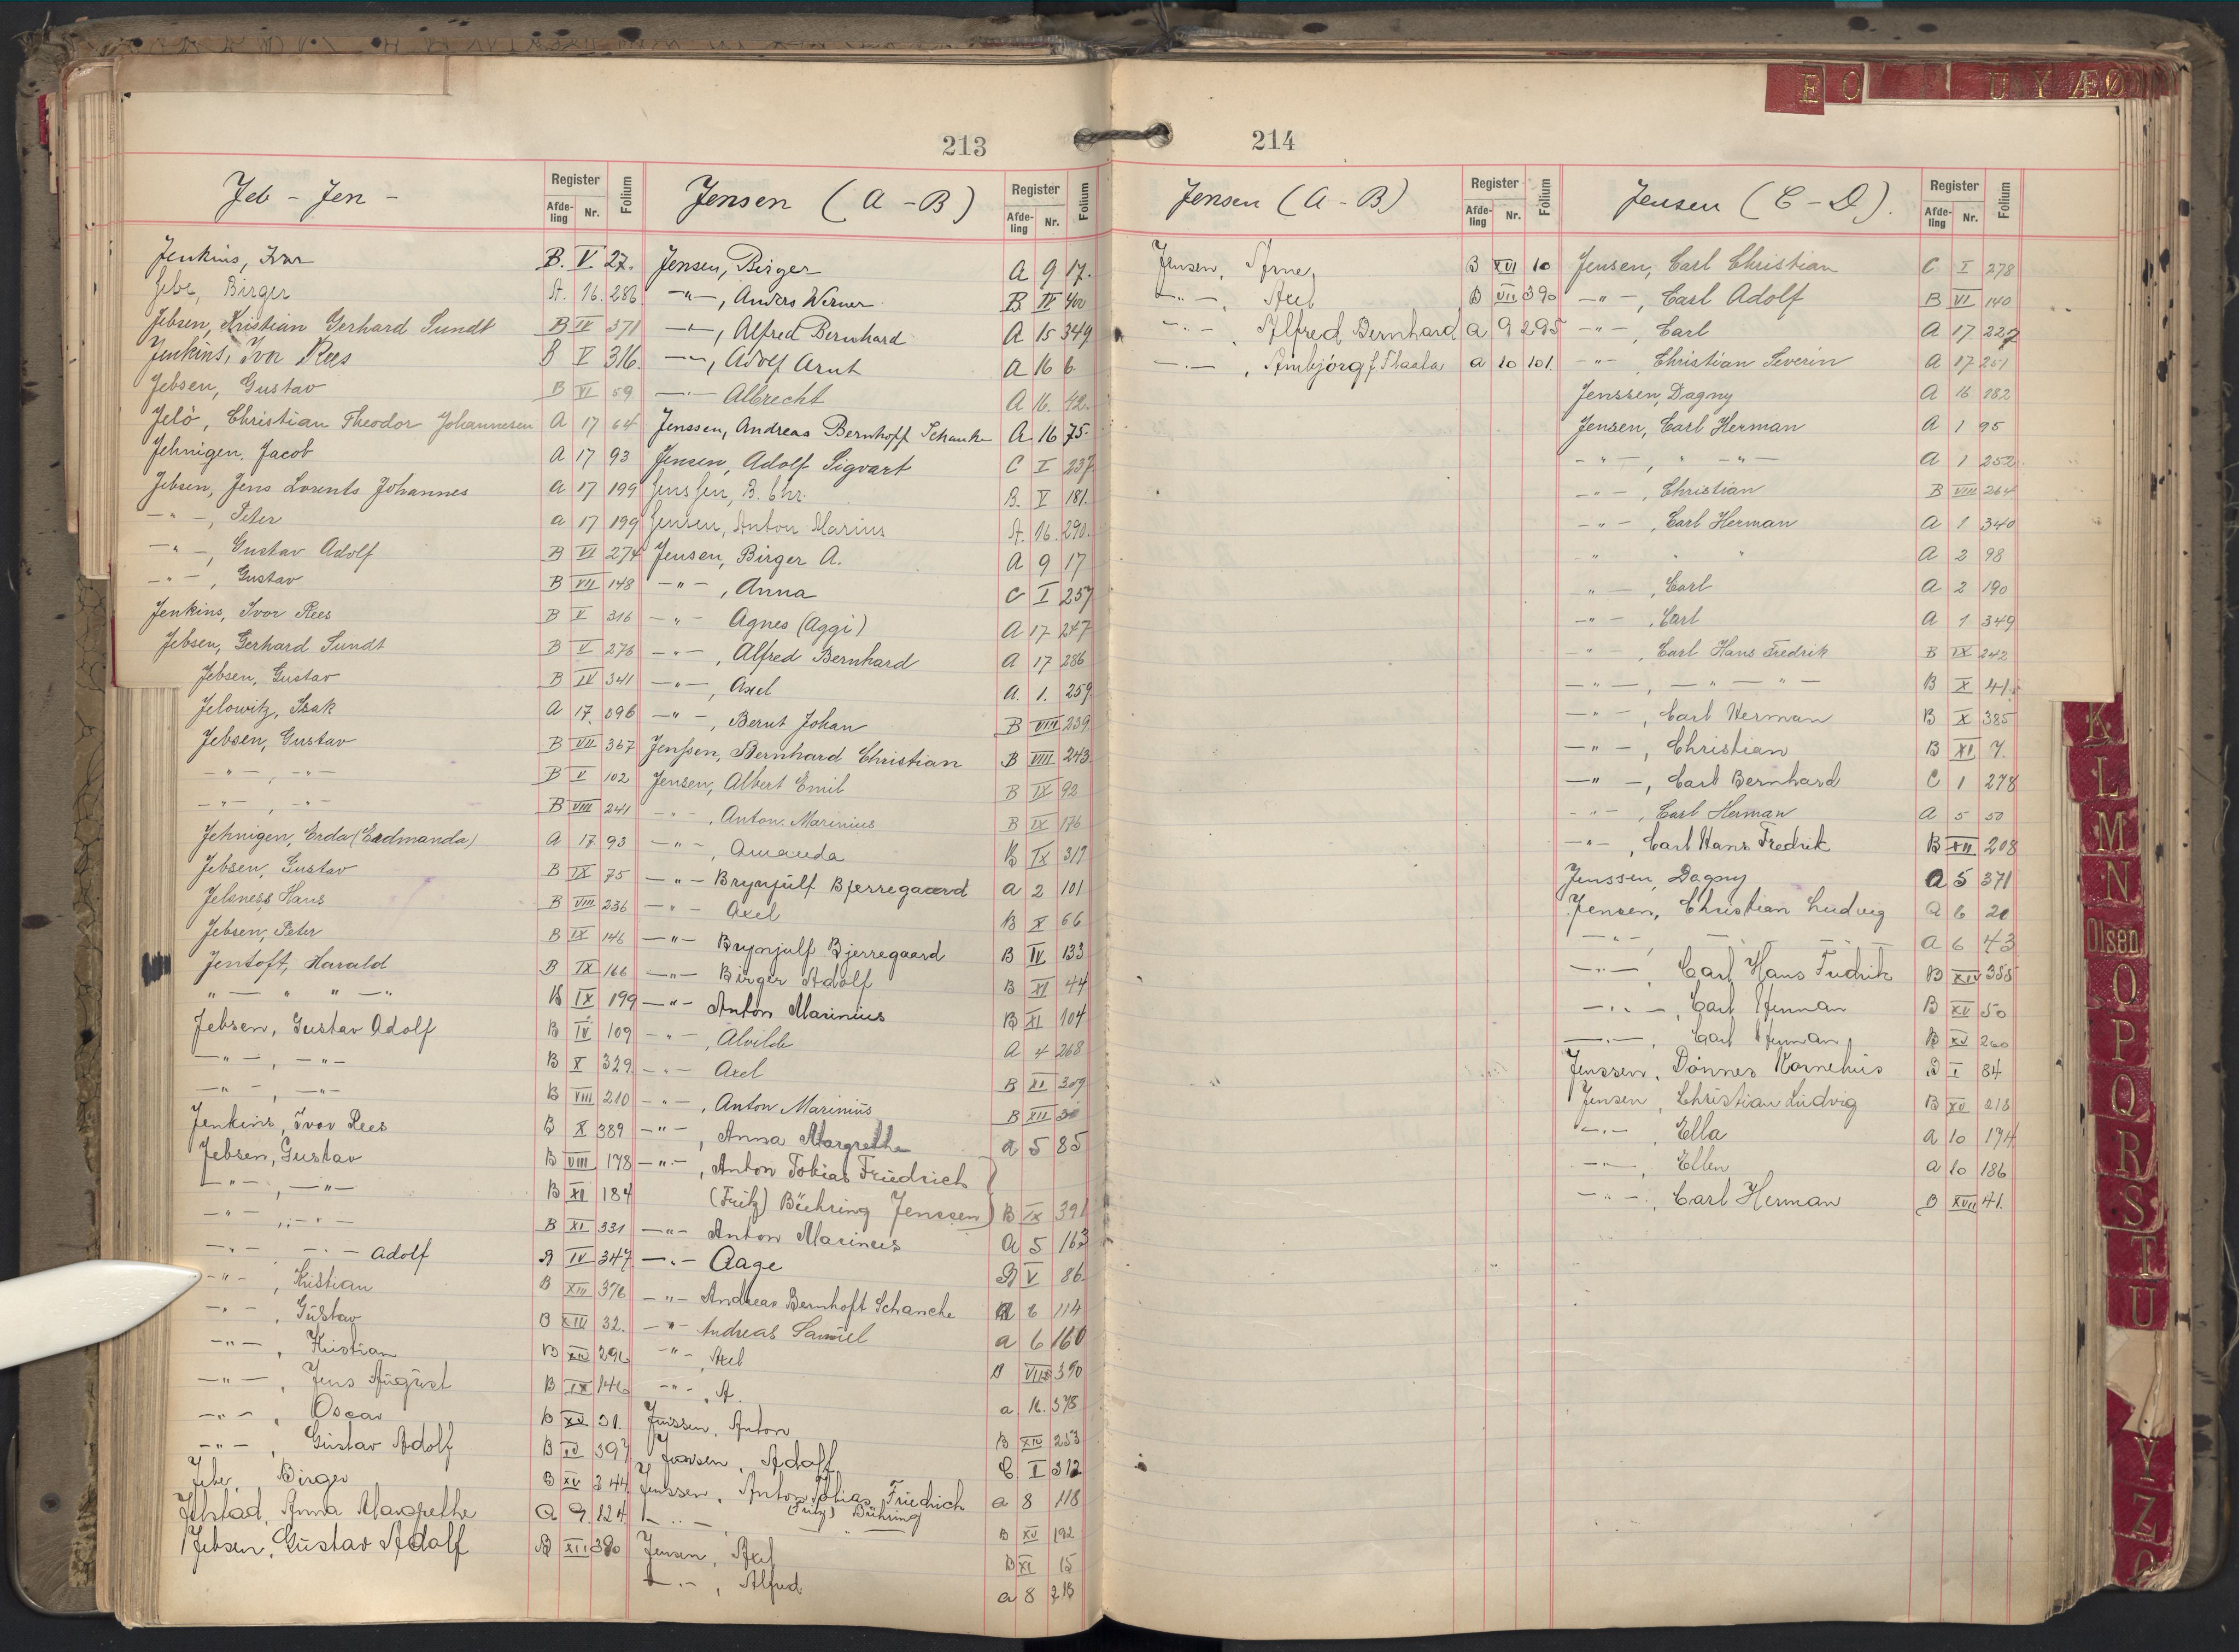 E C U Y Æ Ø
213
Jeb - Jen -
Register
Afde-ling Nr. Folium
Jenkins, Ivar B. V 27.
Jebe, Birger A. 16. 286
Jebsen, Kristian Gerhard Sundt B IV 371
Jenkins, Ivor Rees B V 316.
Jebsen, Gustav B VI 59
Jelö, Christian Theodor Johannesen A 17 64
Jehnigen, Jacob A 17 93
Jebsen, Jens Lorents Johannes a 17 199
-"-, Peter a 17 199
-"-, Gustav Adolf B VI 274
-"-, Gustav B VII 148
Jenkins, Ivor Rees B V 316
Jebsen, Gerhard Sundt B V 276
Jebsen, Gustav B IV 341
Jelowitz, Isak A 17. 396
Jebsen, Gustav B VII 367
-"-, -"- B V 102
-"-, -"- B VIII 241
Jehnigen, Erda (Erdmanda) A 17 93
Jebsen, Gustav B IX 75
Jelsness, Hans B VIII 236
Jebsen, Peter B IX 146
Jentoft, Harald B IX 166
" - " " - " B IX 199
Jebsen, Gustav Adolf B IV 109
-"-, -"- B X 329
-"-, -"- B VIII 210
Jenkins, Ivor Rees B X 389
Jebsen, Gustav B VIII 178
-"-, -"- B XI 184
-"-, -"- B XI 331
-"- -"- Adolf B IV 347
-"-, Kristian B XIII 376
-"-, Gustav B XIII 32.
-"-, Kristian B XIV 296
-"-, Jens August B IX 146
-"-, Oscar B XV 31.
-"-, Gustav Adolf B IV 397
Jebe, Birger B XV 344
Jelstad, Anna Margrethe a 9. 124
Jebsen, Gustav Adolf B XII 380
Jensen (A - B)
Register
Afde-ling Nr. Folium
Jensen, Birger A 9 17.
-"-, Anders Werner B IV 400
-"-, Alfred Bernhard A 15 349
-"-, Adolf Arnt A 16 6
-"- Albrecht A 16. 42.
Jenssen, Andreas Bernhoff Schanke A 16 75.
Jensen, Adolf Sigvart C I 237
Jenssen, B. Chr. B. V 181.
Jensen, Anton Marius A. 16. 290.
Jensen, Birger A. A 9 17
-"-, Anna C I 257
-"- Agnes (Aggi) A 17 247
-"-, Alfred Bernhard A 17 286
-"-, Axel A. 1. 259
-"-, Bernt Johan B VIII 239
Jenssen, Bernhard Christian B VIII 243
Jensen, Albert Emil B IX 92
-"-, Anton Marinius B IX 176
-"-, Amanda B IX 317
-"- Brynjulf Bjerregaard a 2 101
-"- Axel B X 66
-"- Brynjulf Bjerregaard B IV 133
-"- Birger Adolf B XI 44
-"- Anton Marinius B XI 104
-"-, Alvilde A 4 268
-"- Axel B XI 309
-"-, Anton Marinius B XII 30
-"-, Anna Margrethe a 5 85
-"-, Anton Tobias Friedrich
(Fritz) Bühring Jenssen) B IX 391
-"- Anton Marinius a 5 163
-"- Aage B V 86.
-"- Andreas Bernhoft Schanche A 6 114
-"- Andreas Samuel a 6 160
-"- Axel B VIII 390
-"- A. a 16. 378
Jenssen, Anton B XIV 253
Jensen, Adolf C I 312
Jenssen, Anton Tobias Friedrich a 8 118
(Fritz) Bühring
-"- B XV 192
Jensen, Axel B XI 15
-"-, Alfred a 8 213
214
Jensen (A - B)
Register
Afde-ling Nr. Folium
Jensen, Arne B XVI 10
-"-, Axel B VII 390
-"-, Alfred Bernhard a 9 295
-"-, Ambjörg f. Thaala a 10 101
Jensen (C - D).
Register
Afde-ling Nr. Folium
Jensen, Carl Christian C I 278
-"-, Carl Adolf B VI 140
-"-, Carl A 17 227
-"-, Christian Severin A 17 251
Jenssen, Dagny A 16 382
Jensen, Carl Herman A 1 95
-"-, " -"- A 1 252
-"-, Christian B VIII 264
-"-, Carl Herman A 1 340
" " " A 2 98
-"-, Carl A 2 190
-"-, Carl A 1 349
-"-, Carl Hans Fredrik B IX 242
-"-, -"-"- B X 41.
-"-, Carl Herman B X 385
-"-, Christian B XI 7.
-"-, Carl Bernhard C 1 278
-"-, Carl Herman A 5 50
-"-, Carl Hans Fredrik B XII 208
Jenssen, Dagny A 5 371
Jensen, Christian Ludvig a 6 20
-"-, - - - a 6 43
-"-, Carl Hans Fredrik B XIV 358
-"-, Carl Herman B XV 50
-"-, Carl Herman B XV 260
Jenssen, Dönnes Kornelius B I 84
Jensen, Christian Ludvig B XV 213
-"-, Ella a 10 174
-"-, Ellen a 10 186
-"-, Carl Herman B XVII 41.
K
L
M
N
Olsen
O
P
Q
R
S
T
U
Y
Z